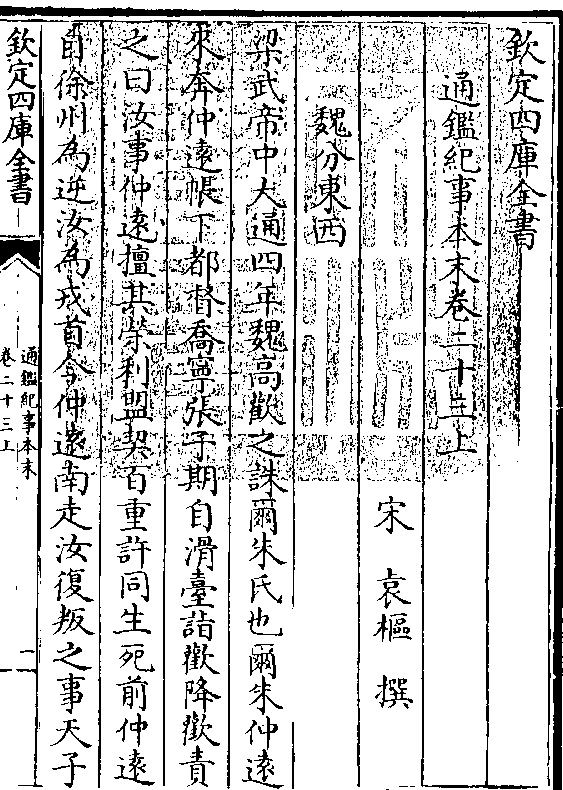 欽定四庫全書
通鑑紀事本末卷二十三上
宋 袁樞 撰
魏分東西
梁武帝中大通四年魏高歡之誅爾朱氏也爾朱仲遠
來奔仲遠帳下都督喬寧張子期自滑臺詣歡降歡責
之曰汝事仲遠擅其榮利盟契百重許同生死前仲遠
自徐州為逆汝為戎首今仲遠南走汝復叛之事天子
欽定四庫全書
通鑑紀事本末
卷二十三上
一